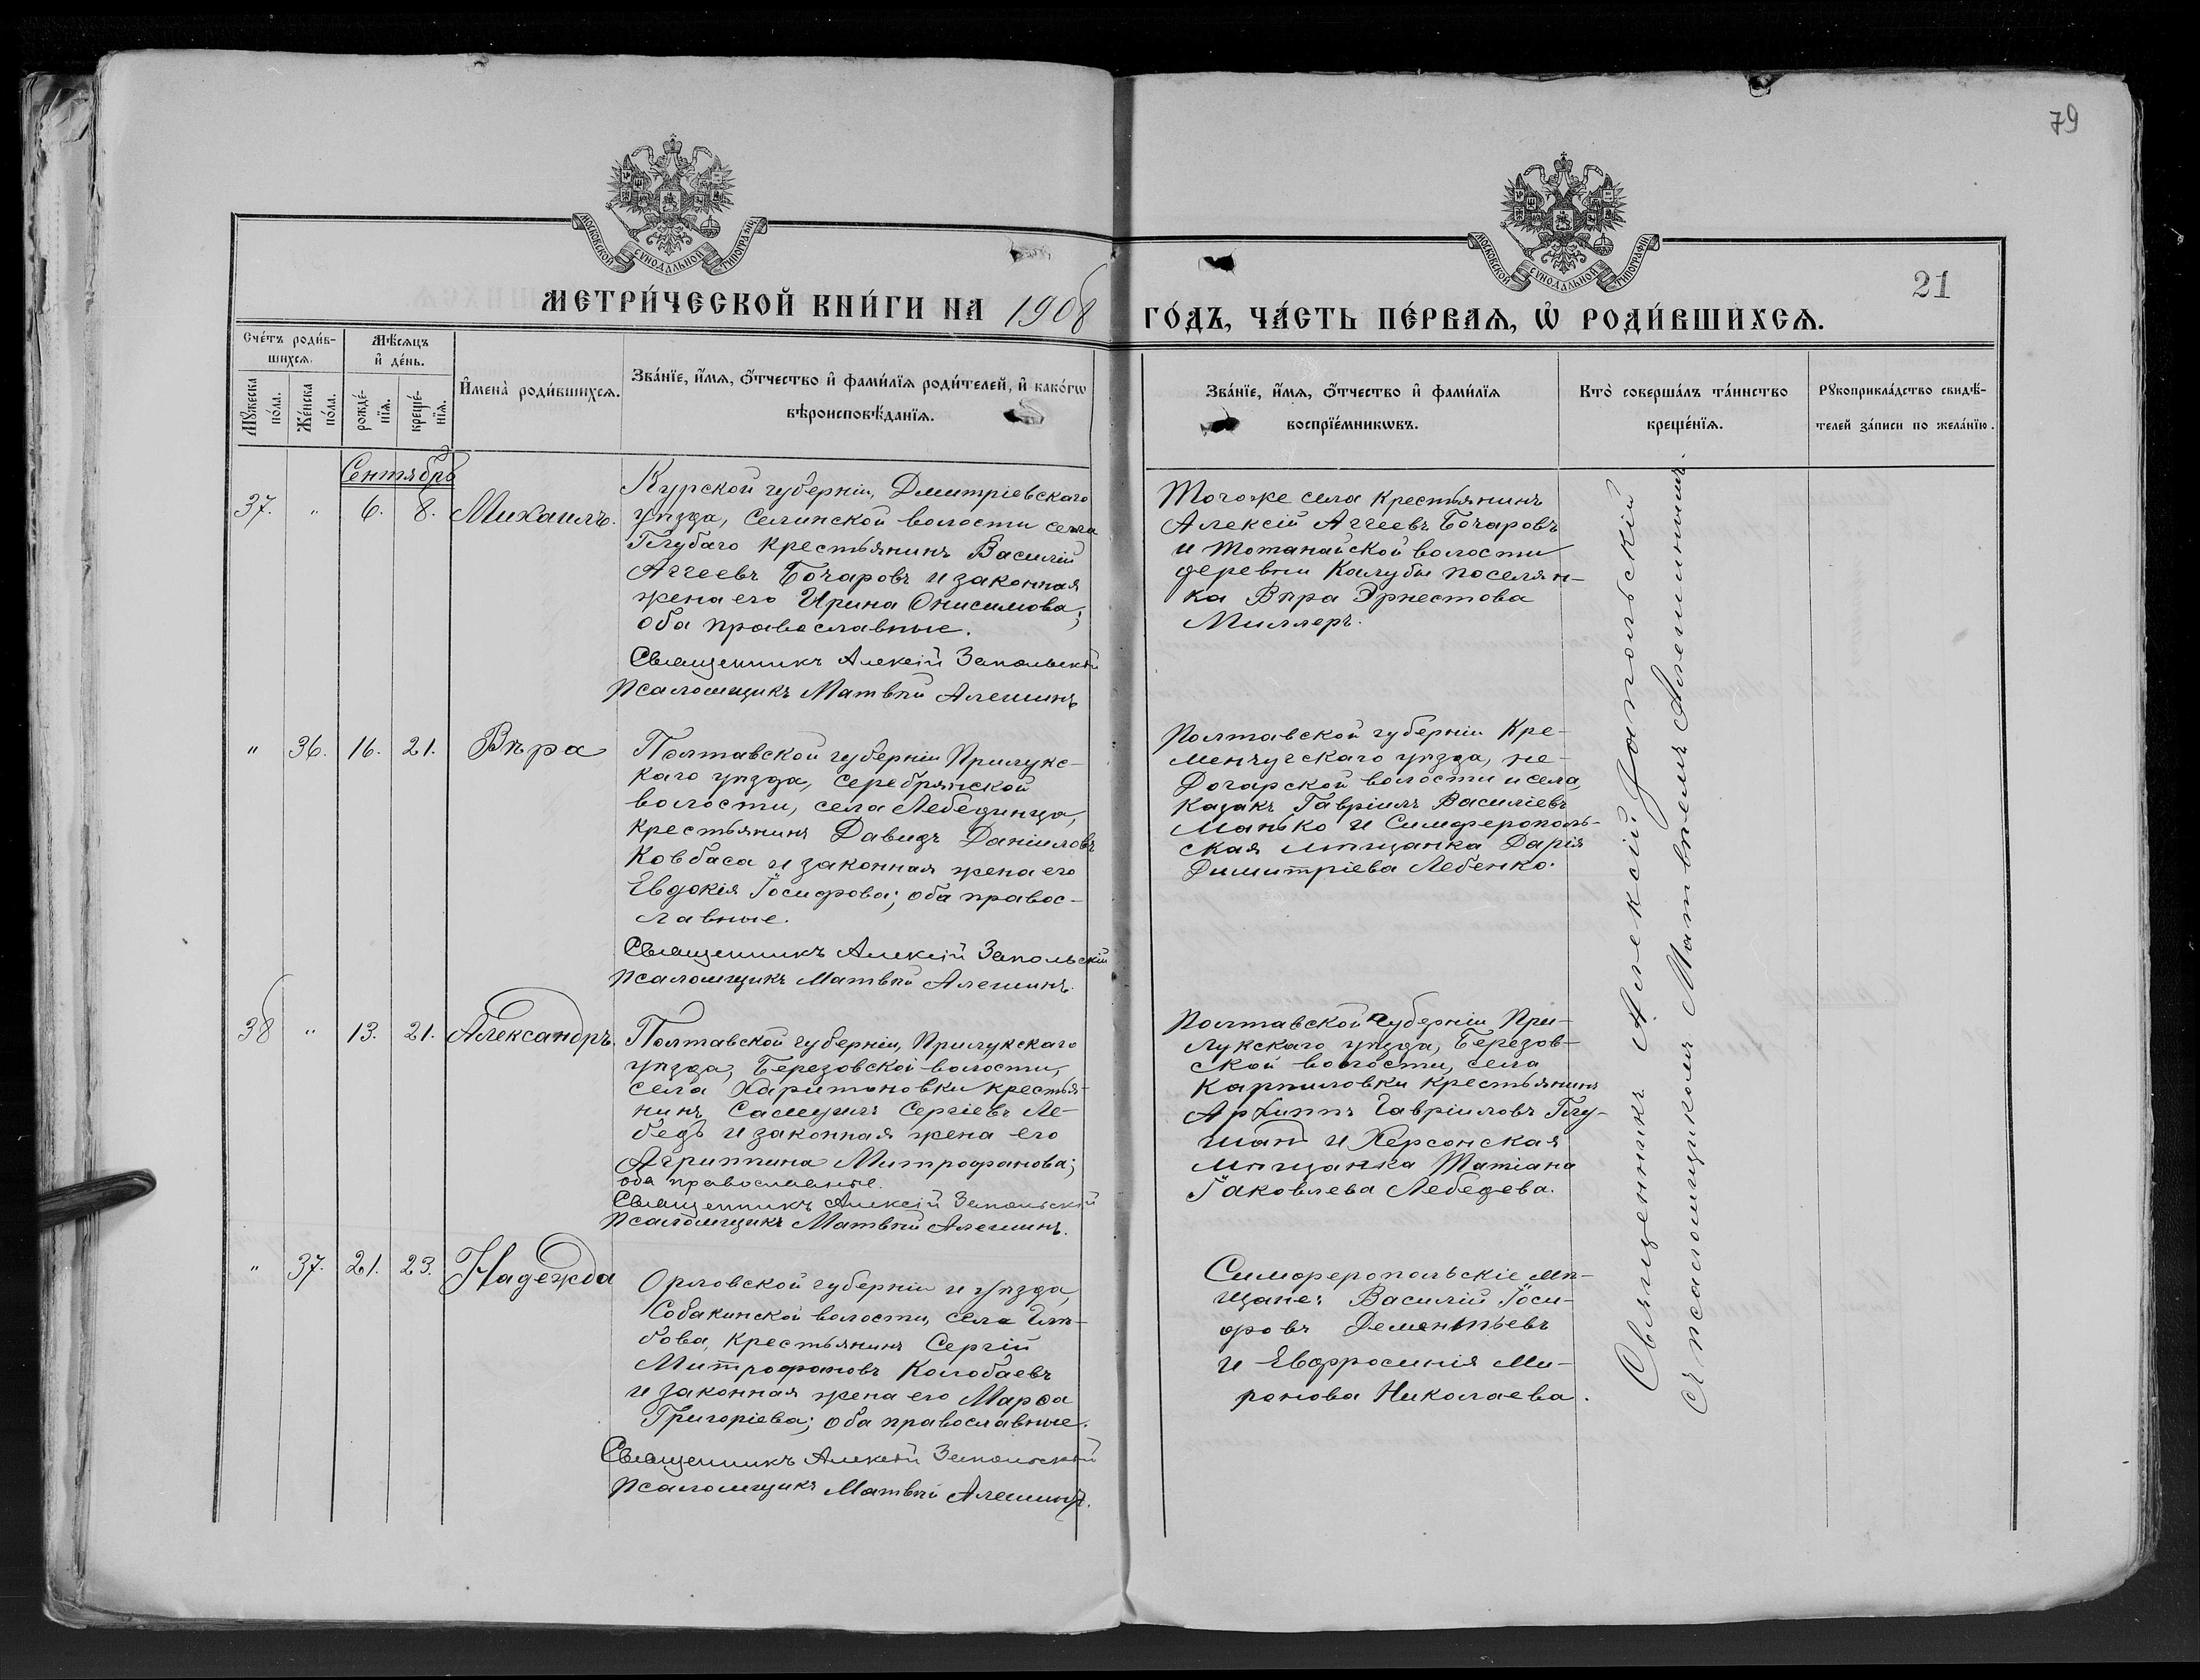 79
МОСКОВСКОЙ СѴНОДАЛЬНОЙ ТИПОГРАФІИ
МОСКОВСКОЙ СѴНОДАЛЬНОЙ ТИПОГРАФІИ
21
МЕТРИ́ЧЕСКОЙ КНИ́ГИ НА 1908 ГО́ДЪ, ЧА́СТЬ ПЕ́РВАѦ, Ѡ҆ РОДИ́ВШИХСѦ.
Сче́тъ роди́в-
шихсѧ.
Мѣ́сѧцъ
и҆ де́нь.
Мꙋ́жеска
по́ла.
Же́нска
по́ла.
рожде́-
нїѧ.
креще́-
нїѧ.
И҆мена̀ роди́вшихсѧ.
Зва́нїе, и҆́мѧ, ѻ҆́тчество и҆ фами́лїѧ роди́телей, и҆ како́гѡ
вѣроисповѣ́данїѧ.
Зва́нїе, и҆́мѧ, ѻ҆́тчество и҆ фами́лїѧ
воспрїе́мникѡвъ.
Кто̀ соверша́лъ та́инство
креще́нїѧ.
Рꙋкоприкла́дство свидѣ́-
телей за́писи по жела́нїю.
Сентябрь
37. " 6. 8. Михаилъ.
Курской губерніи, Дмитріевскаго
уѣзда, Селинской волости села
Глубаго крестьянинъ Василій
Аггеевъ Бочаровъ и законная
жена его Ирина Онисимова;
оба православные.
Священникъ Алексій Запольскій
Псаломщикъ Матвѣй Алешинъ
Тогоже села крестьянинъ
Алексій Аггеевъ Бочаровъ
и Тотанайской волости
деревни Калубы поселян-
ка Вѣра Эрнестова
Миллеръ.
" 36. 16. 21. Вѣра
Полтавской губерніи Прилукс-
каго уѣзда, Серебрянской
волости, села Лебединца,
крестьянинъ Давидъ Даніиловъ
Ковбаса и законная жена его
Евдокія Іосифова; оба правос-
лавные.
Священникъ Алексій Запольскій
Псаломщикъ Матвѣй Алешинъ.
Полтавской губерніи Кре-
менчугскаго уѣзда, не-
Догарской волости и села,
казакъ Гавріилъ Василіевъ
Манько и Симферополь-
ская мѣщанка Дарія
Димитріева Лебенко.
38 " 13. 21. Александръ.
Полтавской губерніи, Прилукскаго
уѣзда, Березовской волости,
села Харитоновки крестья-
нинъ Самуилъ Сергіевъ Ле-
бедь и законная жена его
Агриппина Митрофанова;
оба православные.
Священникъ Алексій Запольскій
Псаломщикъ Матвѣй Алешинъ.
Полтавской губерніи При-
лукскаго уѣзда, Березов-
ской волости, села
Карпиловки крестьянинъ
Архиппъ Гавріиловъ Глу-
и Херсонская
мѣщанка Татіана
Іаковлева Лебедева.
" 37. 21. 23. Надежда
Орловской губерніи и уѣзда,
Собакинской волости, села
крестьянинъ Сергій
Митрофановъ Колобаевъ
и законная жена его Марѳа
Григоріева; оба православные.
Священникъ Алексій Запольскій
Псаломщикъ Матвѣй Алешинъ.
Симферопольскіе мѣ-
щане: Василій Іоси-
фовъ Дементьевъ
и Евфросинія Ми-
ронова Николаева.
Священникъ Алексій Запольскій
съ псаломщикомъ Матвѣемъ Алешинымъ.